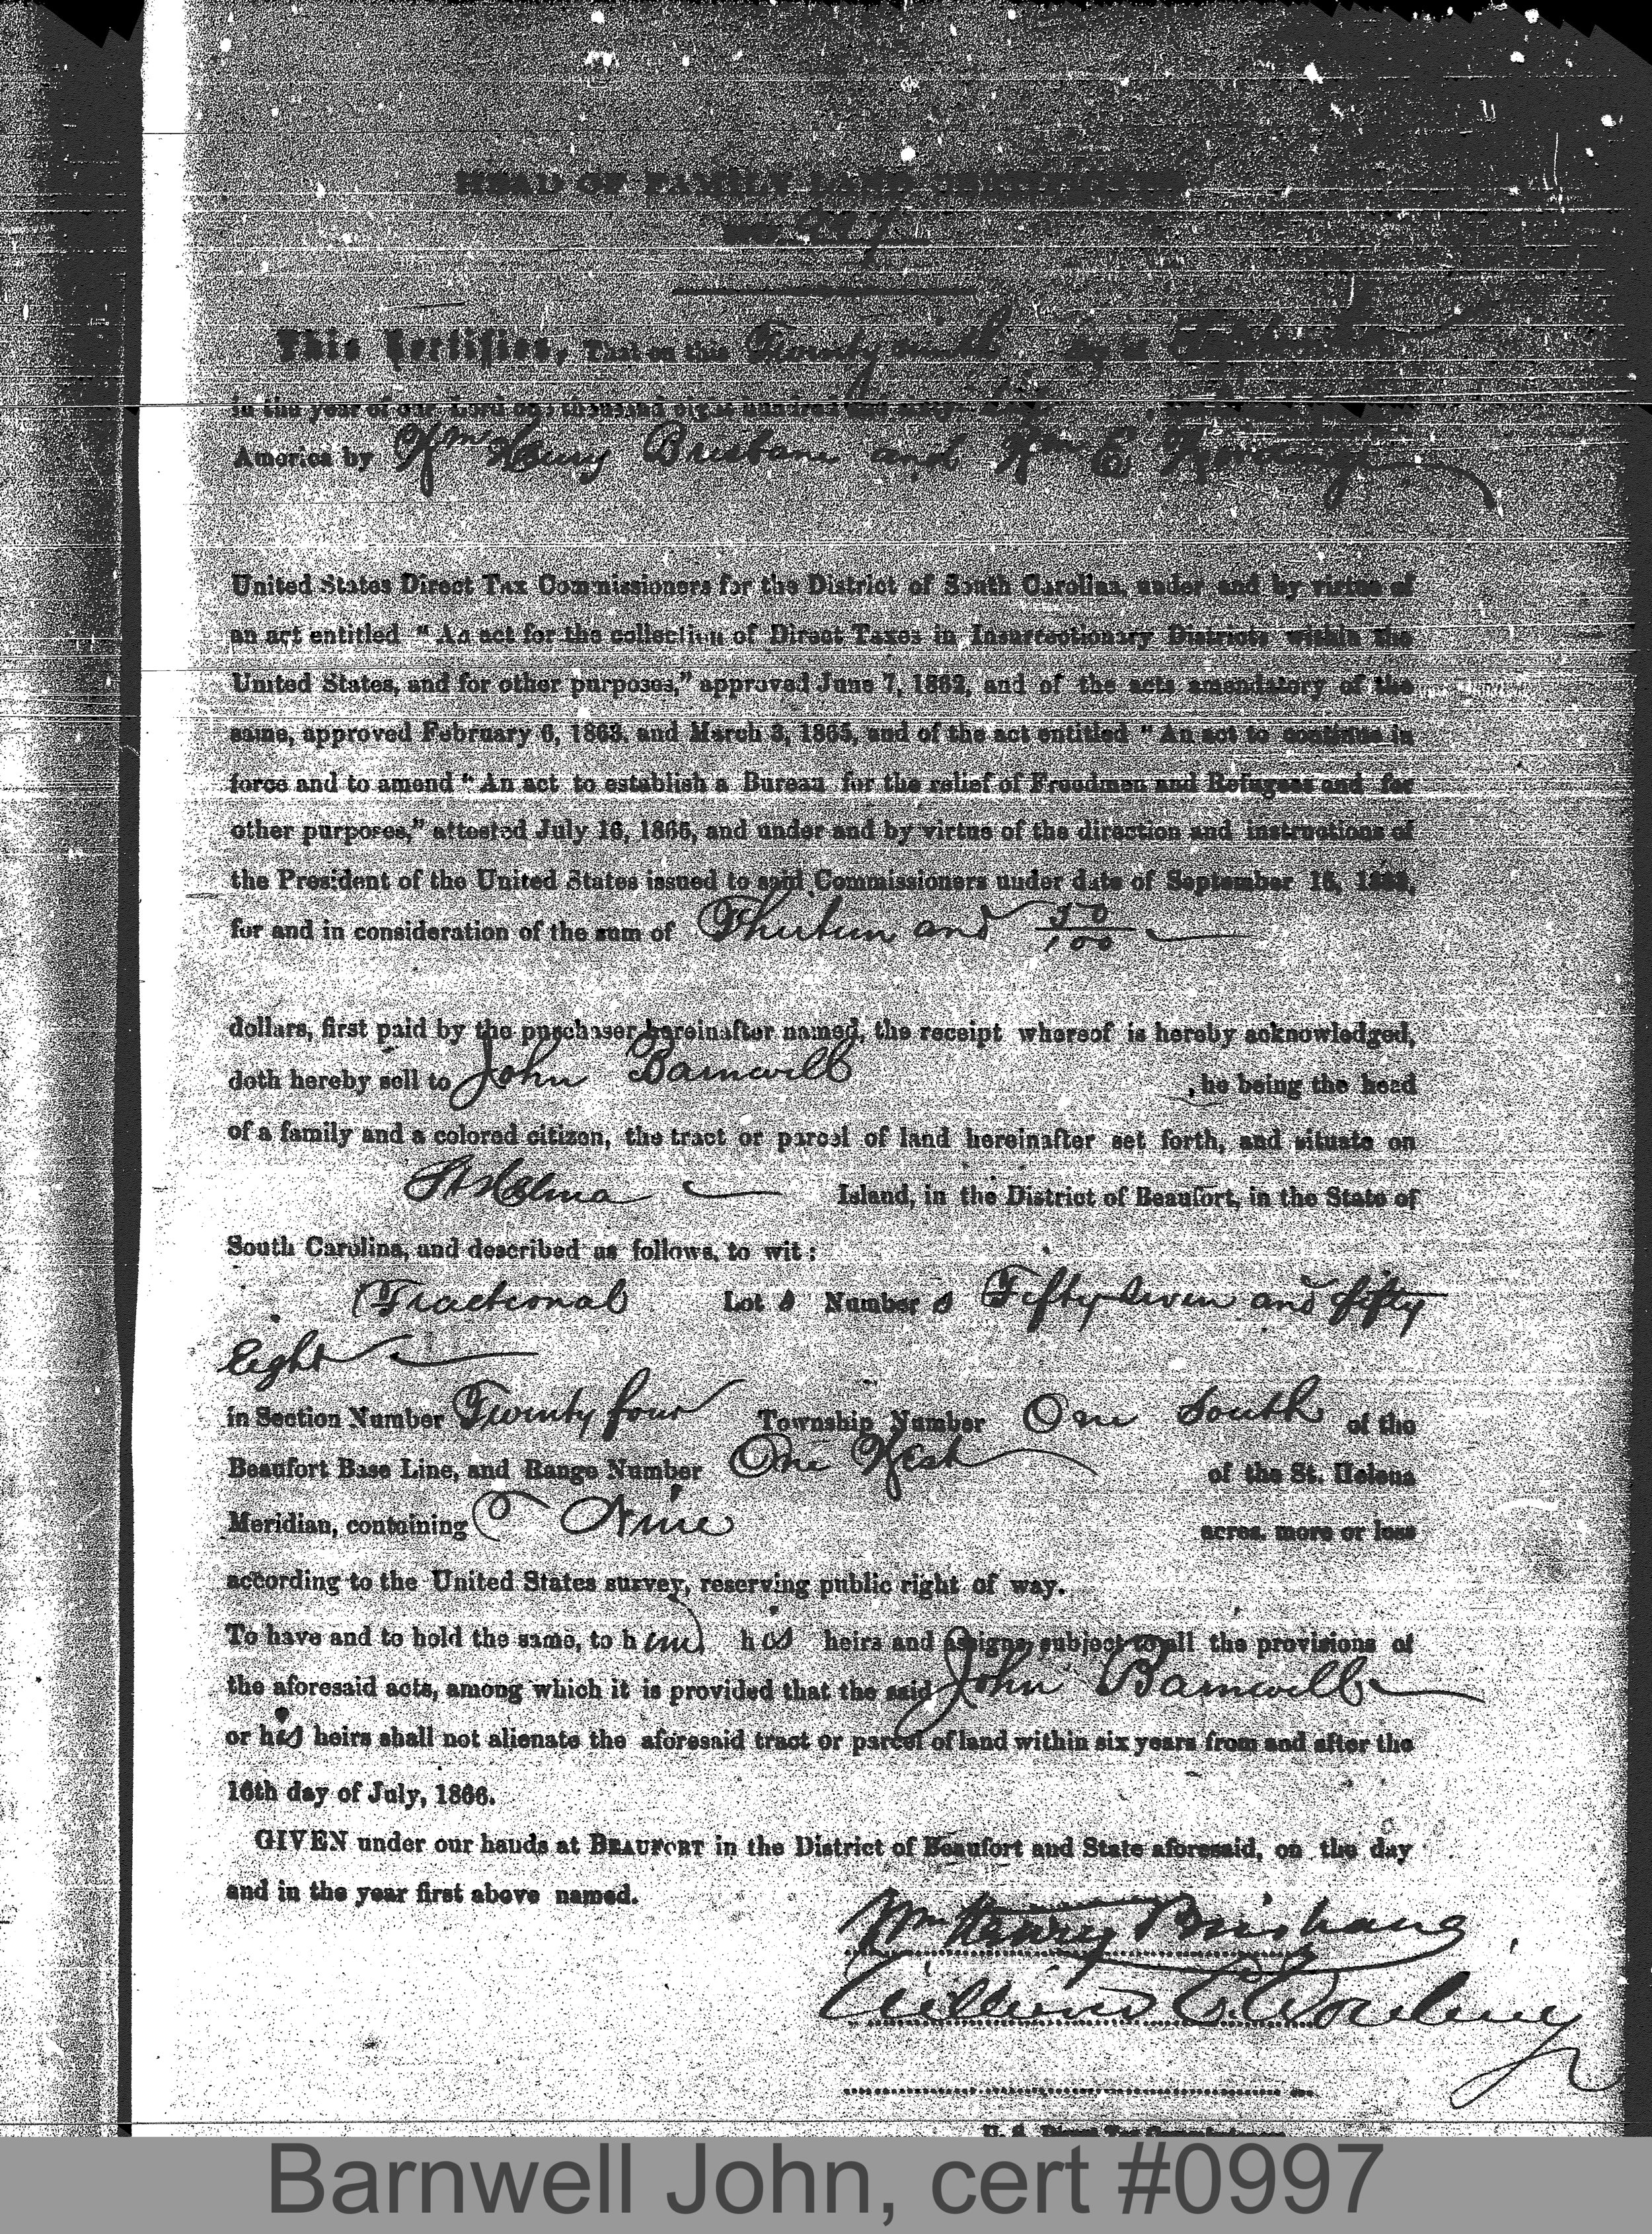 HEAD OF FAMILY LAND CERTIFICATE
No. 997
This Certifies, That on this Twenty ninth day of
in the year of our Lord one thousand eight hundred and sixty
America by Wm Henry Brisbane and Wm E Wording
United States Direct Tax Commissioners for the District of South Carolina, under and by virtue of
an act entitled "An act for the collection of Direct Taxes in Insurrectionary Districts within the
United States, and for other purposes," approved June 7, 1862, and of the acts amendatory of the
same, approved February 6, 1863, and March 3, 1865, and of the act entitled "An act to continue in
force and to amend "An act to establish a Bureau for the relief of Freedmen and Refugees and for
other purposes," attested July 16, 1866, and under and by virtue of the direction and instructions of
the President of the United States issued to said Commissioners under date of September 16, 1863,
for and in consideration of the sum of Thirteen and 50/100
dollars, first paid by the purchaser hereinafter named, the receipt whereof is hereby acknowledged,
doth hereby sell to John Barnwell , he being the head
of a family and a colored citizen, the tract or parcel of land hereinafter set forth, and situate on
St Helena Island, in the District of Beaufort, in the State of
South Carolina, and described as follows, to wit:
Fractional Lot s Number s Fifty seven and fifty
Eight
in Section Number Twenty four Township Number One South of the
Beaufort Base Line, and Range Number One West of the St. Helena
Meridian, containing Nine acres, more or less
according to the United States survey, reserving public right of way.
To have and to hold the same, to him his heirs and assigns, subject to all the provisions of
the aforesaid acts, among which it is provided that the said John Barnwell
or his heirs shall not alienate the aforesaid tract or parcel of land within six years from and after the
16th day of July, 1866.
GIVEN under our hands at BEAUFORT in the District of Beaufort and State aforesaid, on the day
and in the year first above named.
Wm Henry Brisbane
William E. Wording
U. S. Direct Tax Commissioners
Barnwell John, cert #0997